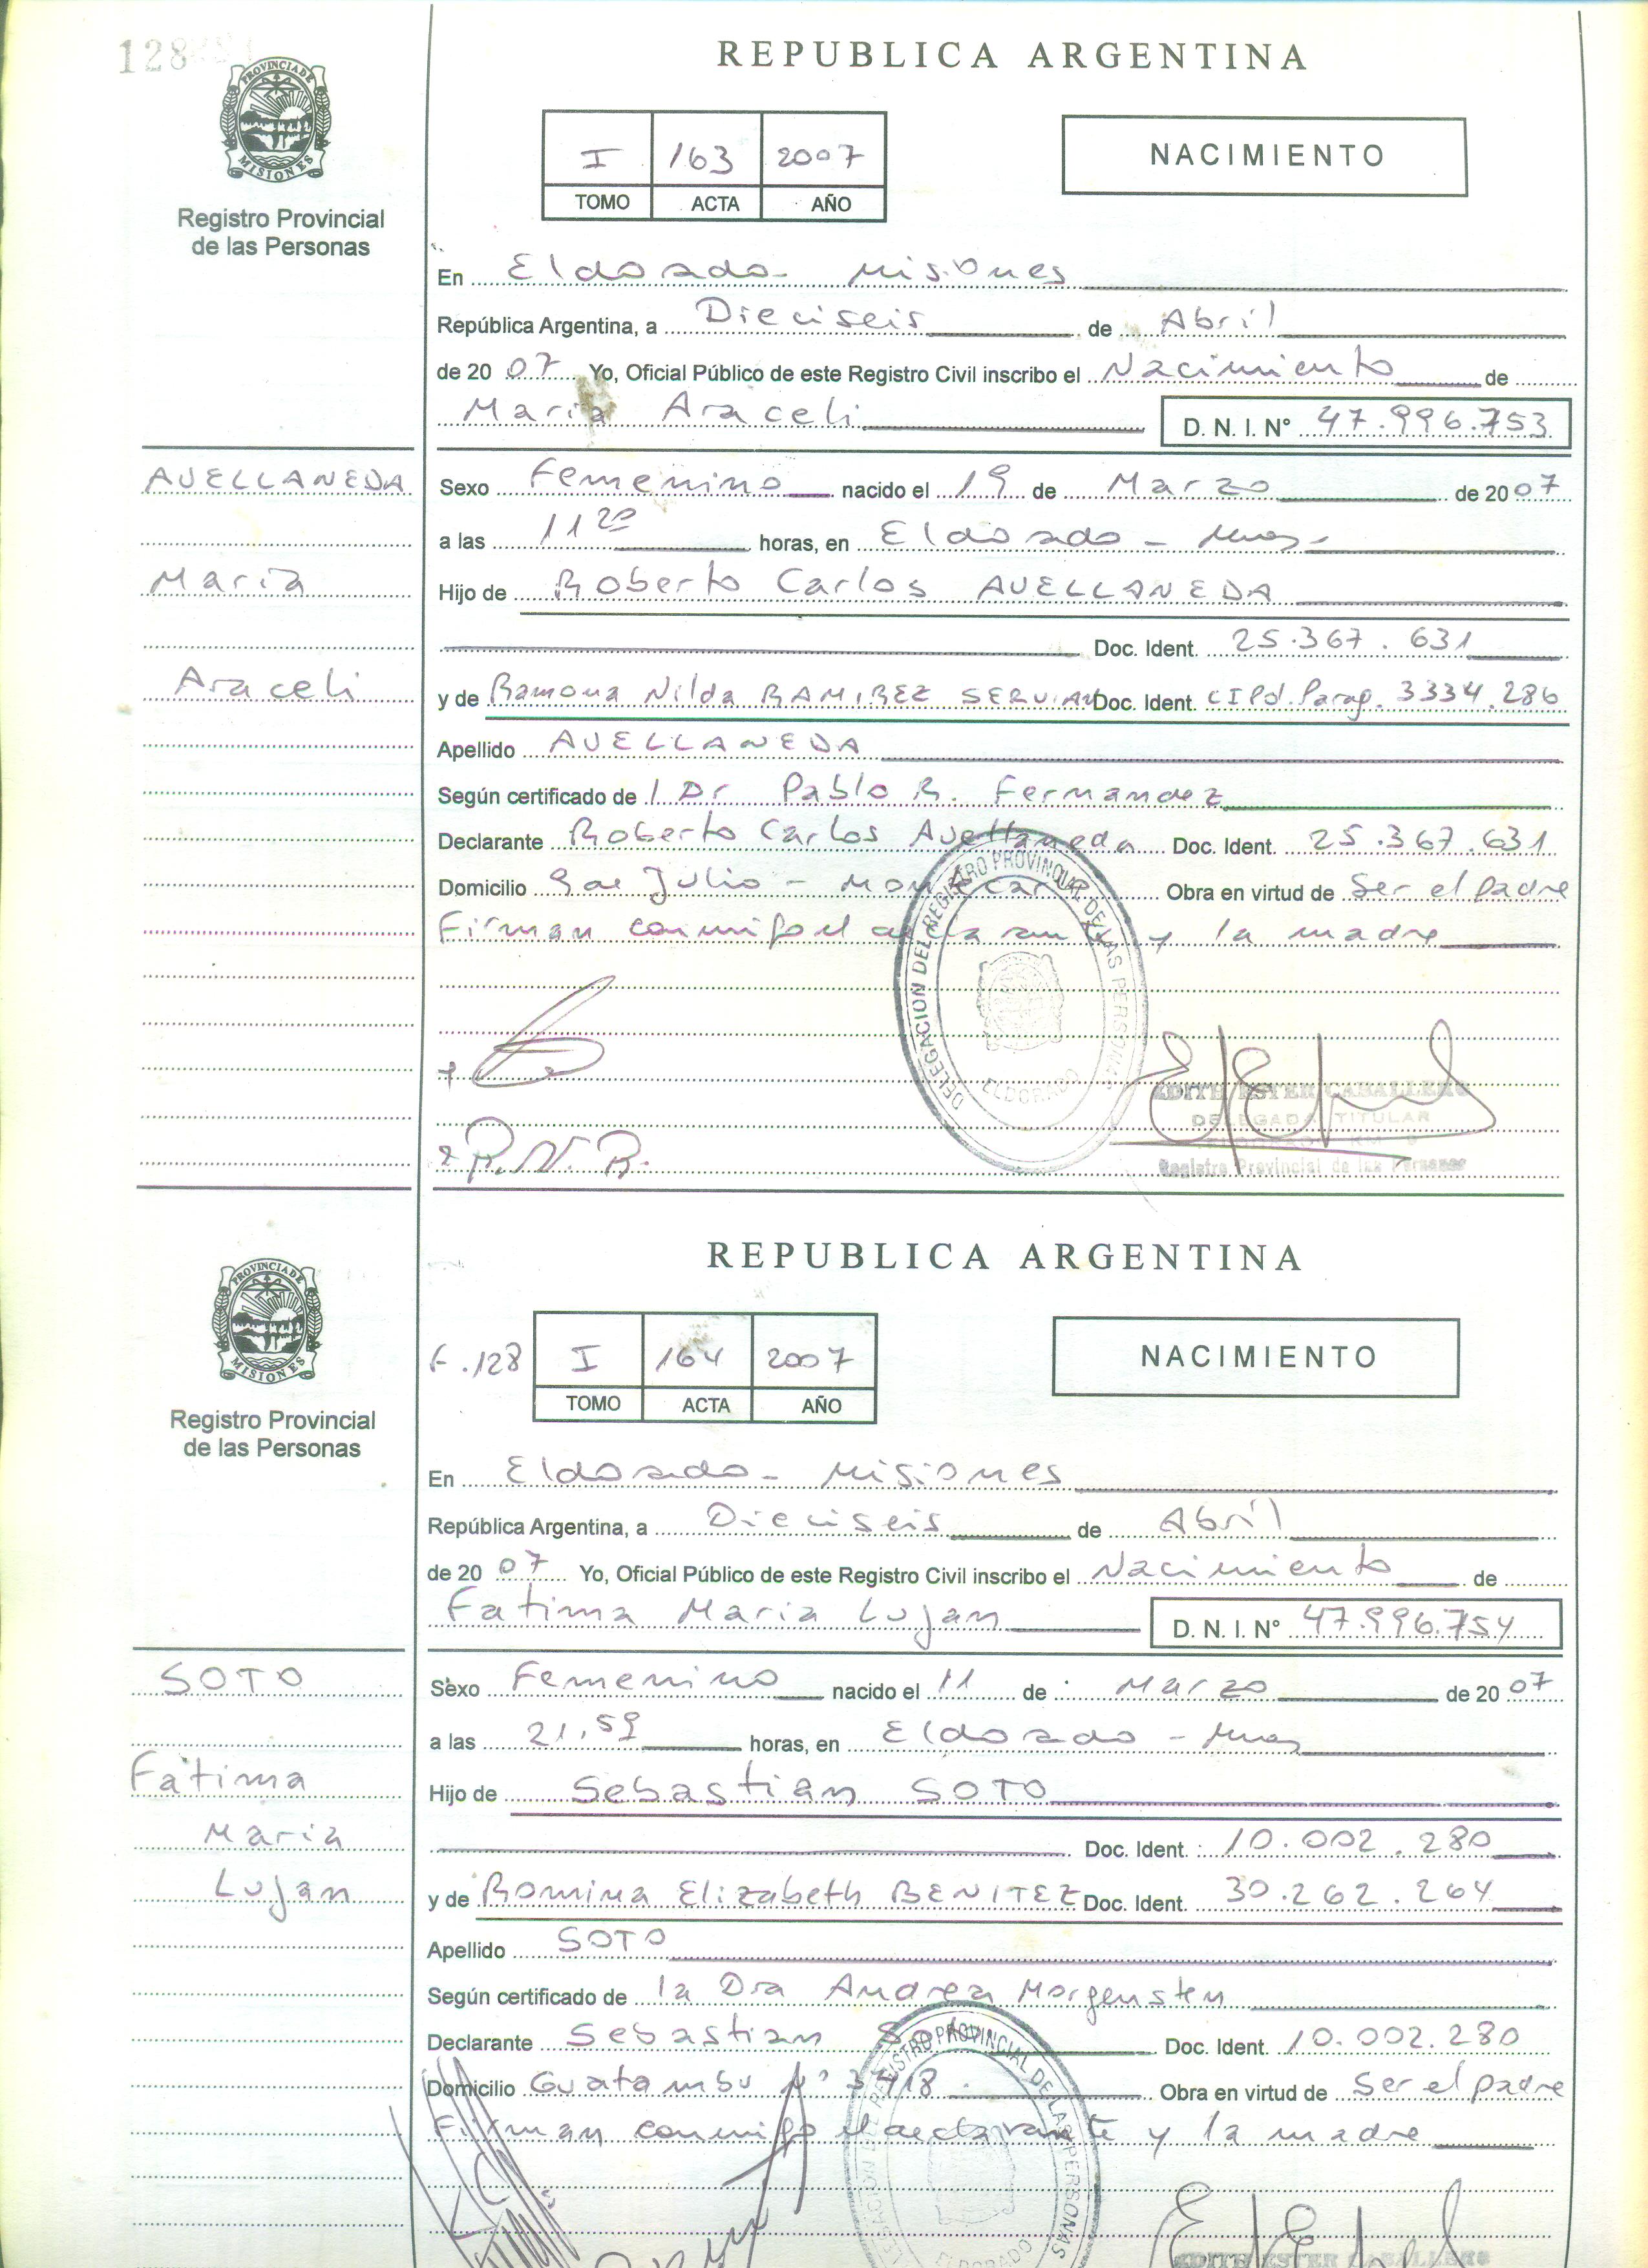 128
PROVINCIA DE
MISIONES
Registro Provincial
de las Personas
REPUBLICA ARGENTINA
I 163 2007
TOMO ACTA AÑO
NACIMIENTO
En Eldorado - Misiones
República Argentina, a Dieciseis de Abril
de 2007 Yo, Oficial Público de este Registro Civil inscribo el Nacimiento de
Maria Araceli D. N. I. Nº 47.996.753
AVELLANEDA
Maria
Araceli
Sexo Femenino nacido el 19 de Marzo de 2007
a las 11 20 horas, en Eldorado - Mnes-
Hijo de Roberto Carlos AVELLANEDA
Doc. Ident. 25.367.631
y de Ramona Nilda RAMIREZ SERVIAN Doc. Ident. CIPd. Parag. 3334.286
Apellido AVELLANEDA
Según certificado de l Dr Pablo R. Fernandez
Declarante Roberto Carlos Avellaneda Doc. Ident. 25.367.631
Domicilio 9 de Julio - Montecarlo Obra en virtud de Ser el padre
Firman conmigo el declarante y la madre
DELEGACION DEL REGISTRO PROVINCIAL DE LAS PERSONAS
ELDORADO
R.N.R.
EDITH ESTER CABALLERO
DELEGADA TITULAR
ELDORADO KM 9
Registro Provincial de las Personas
PROVINCIA DE
MISIONES
Registro Provincial
de las Personas
REPUBLICA ARGENTINA
F.128 I 164 2007
TOMO ACTA AÑO
NACIMIENTO
En Eldorado - Misiones
República Argentina, a Dieciseis de Abril
de 2007 Yo, Oficial Público de este Registro Civil inscribo el Nacimiento de
Fatima Maria Lujan D. N. I. Nº 47.996.754
SOTO
Fatima
Maria
Lujan
Sexo Femenino nacido el 11 de Marzo de 2007
a las 21,59 horas, en Eldorado - Mnes
Hijo de Sebastian SOTO
Doc. Ident. 10.002.280
y de Romina Elizabeth BENITEZ Doc. Ident. 30.262.264
Apellido SOTO
Según certificado de la Dra Andrea Morgensten
Declarante Sebastian Soto Doc. Ident. 10.002.280
Domicilio Guatambu Nº 3418 Obra en virtud de Ser el padre
Firman conmigo el declarante y la madre
REGISTRO PROVINCIAL DE LAS PERSONAS
ELDORADO
EDITH ESTER CABALLERO